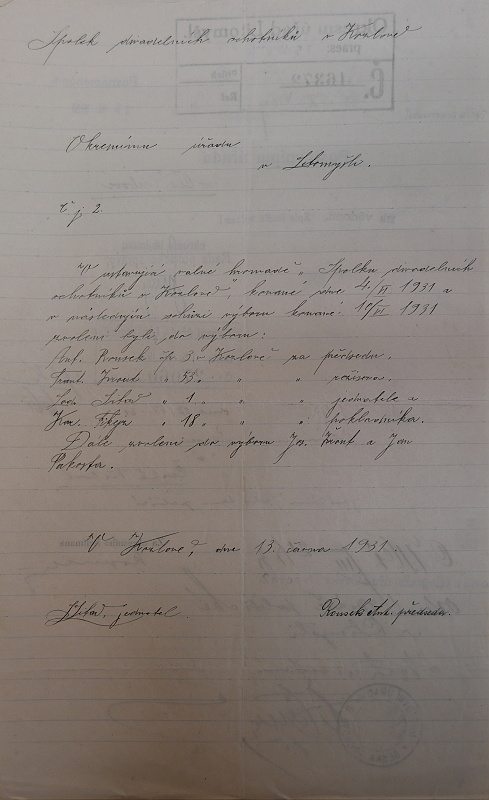 Spolek divadelních ochotníků v Kozlově
Okresnímu úřadu
v Litomyšli.
Č. j. 2.
V ustavující valné hromadě „Spolku divadelních
ochotníků v Kozlově", konané dne 4./VI 1931 a
v následující schůzi výboru konané 11/VI 1931
zvoleni byli do výboru:
Ant. Rousek čp 3 v Kozlově za předsedu.
Frant. Žrout " 55 " " " režisera.
" 1 " " " jednatele a
" 18 " " " pokladníka.
Dále zvoleni do výboru Jos. Žrout a Jan
Pakosta.
V Kozlově, dne 13. června 1931.
jednatel. Rousek Ant. předseda.